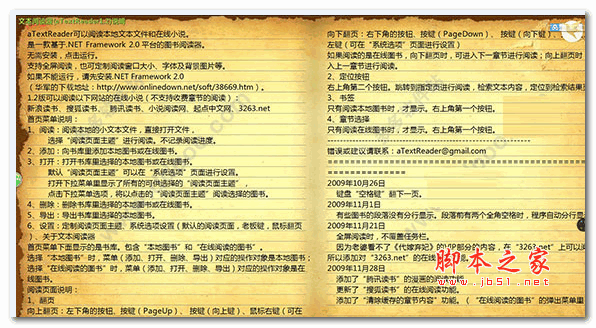 aTextReader可以阅读本地文本文件和在线小说。
是一款基于.NET Framework 2.0 平台的图书阅读器。
无需安装，点击运行。
支持全屏阅读，也可定制阅读窗口大小、字体及背景图片等。
如果不能运行，请先安装.NET Framework 2.0
( 华军的下载地址：http://www.onlinedown.net/soft/38669.htm ) 。
1.2版可以阅读以下网站的在线小说（不支持收费章节的阅读）：
新浪读书、搜狐读书、 腾讯读书、小说阅读网、起点中文网、3263.net
首页菜单说明：
1、阅读：阅读本地的小文本文件，直接打开文件，
选择“阅读页面主题”进行阅读。不记录阅读进度。
2、添加：向书库里添加本地图书或在线图书。
3、打开：打开书库里选择的本地图书或在线图书。
默认“阅读页面主题”可以在“系统选项”页面进行设置
打开下拉菜单显示了所有的可供选择的“阅读页面主题”，
点击下拉菜单选项，将以点击的“阅读页面主题”阅读选择的图书。
4、删除：删除书库里选择的本地图书或在线图书。
5、导出：导出书库里选择的本地图书。
6、设置：定制阅读页面主题、系统选项设置（默认的阅读页面，老板键，鼠标翻页
）、关于文本阅读器
首页菜单下面显示的是书库。包含“本地图书”和“在线阅读的图书”。
选择“本地图书”时，菜单（添加、打开、删除、导出）对应的操作对象是本地图书；
选择“在线阅读的图书”时，菜单（添加、打开、删除、导出）对应的操作对象是在
线图书。
阅读页面说明：
1、翻页
向上翻页：左下角的按钮、按键（PageUp）、 按键（向上键）、鼠标右键（可在
向下翻页：右下角的按钮、按键（PageDown）、 按键（向下键）、
左键（可在“系统选项”页面进行设置）
如果阅读的是在线图书，向下翻页时，可进入下一章节进行阅读；向上翻页时
入上一章节进行阅读。
2、定位按钮
右上角第二个按钮。跳转到指定页进行阅读，检索文本内容，定位到检索结果
3、书签
只有阅读本地图书时，才显示。右上角第一个按钮。
4、章节选择
只有阅读在线图书时，才显示。右上角第一个按钮。
错误或建议请联系：aTextReader@gmail.com
2009年10月26日
键盘“空格键”翻下一页。
2009年11月1日
有些图书的段落没有分行显示。段落前有两个全角空格时，程序自动分行显
2009年11月21日
全屏阅读时，不覆盖任务栏。
因为老婆看不了《代嫁弃妃》的VIP部分的内容，在“3263.net”上可以阅
所以添加对“3263.net”的在线阅读功能。
2009年11月28日
添加了“腾讯读书”的漫画的阅读功能。
更新了“搜狐读书”的在线阅读功能。
添加了“清除缓存的章节内容”功能。（“在线阅读的图书”的弹出菜单里
脚本之家